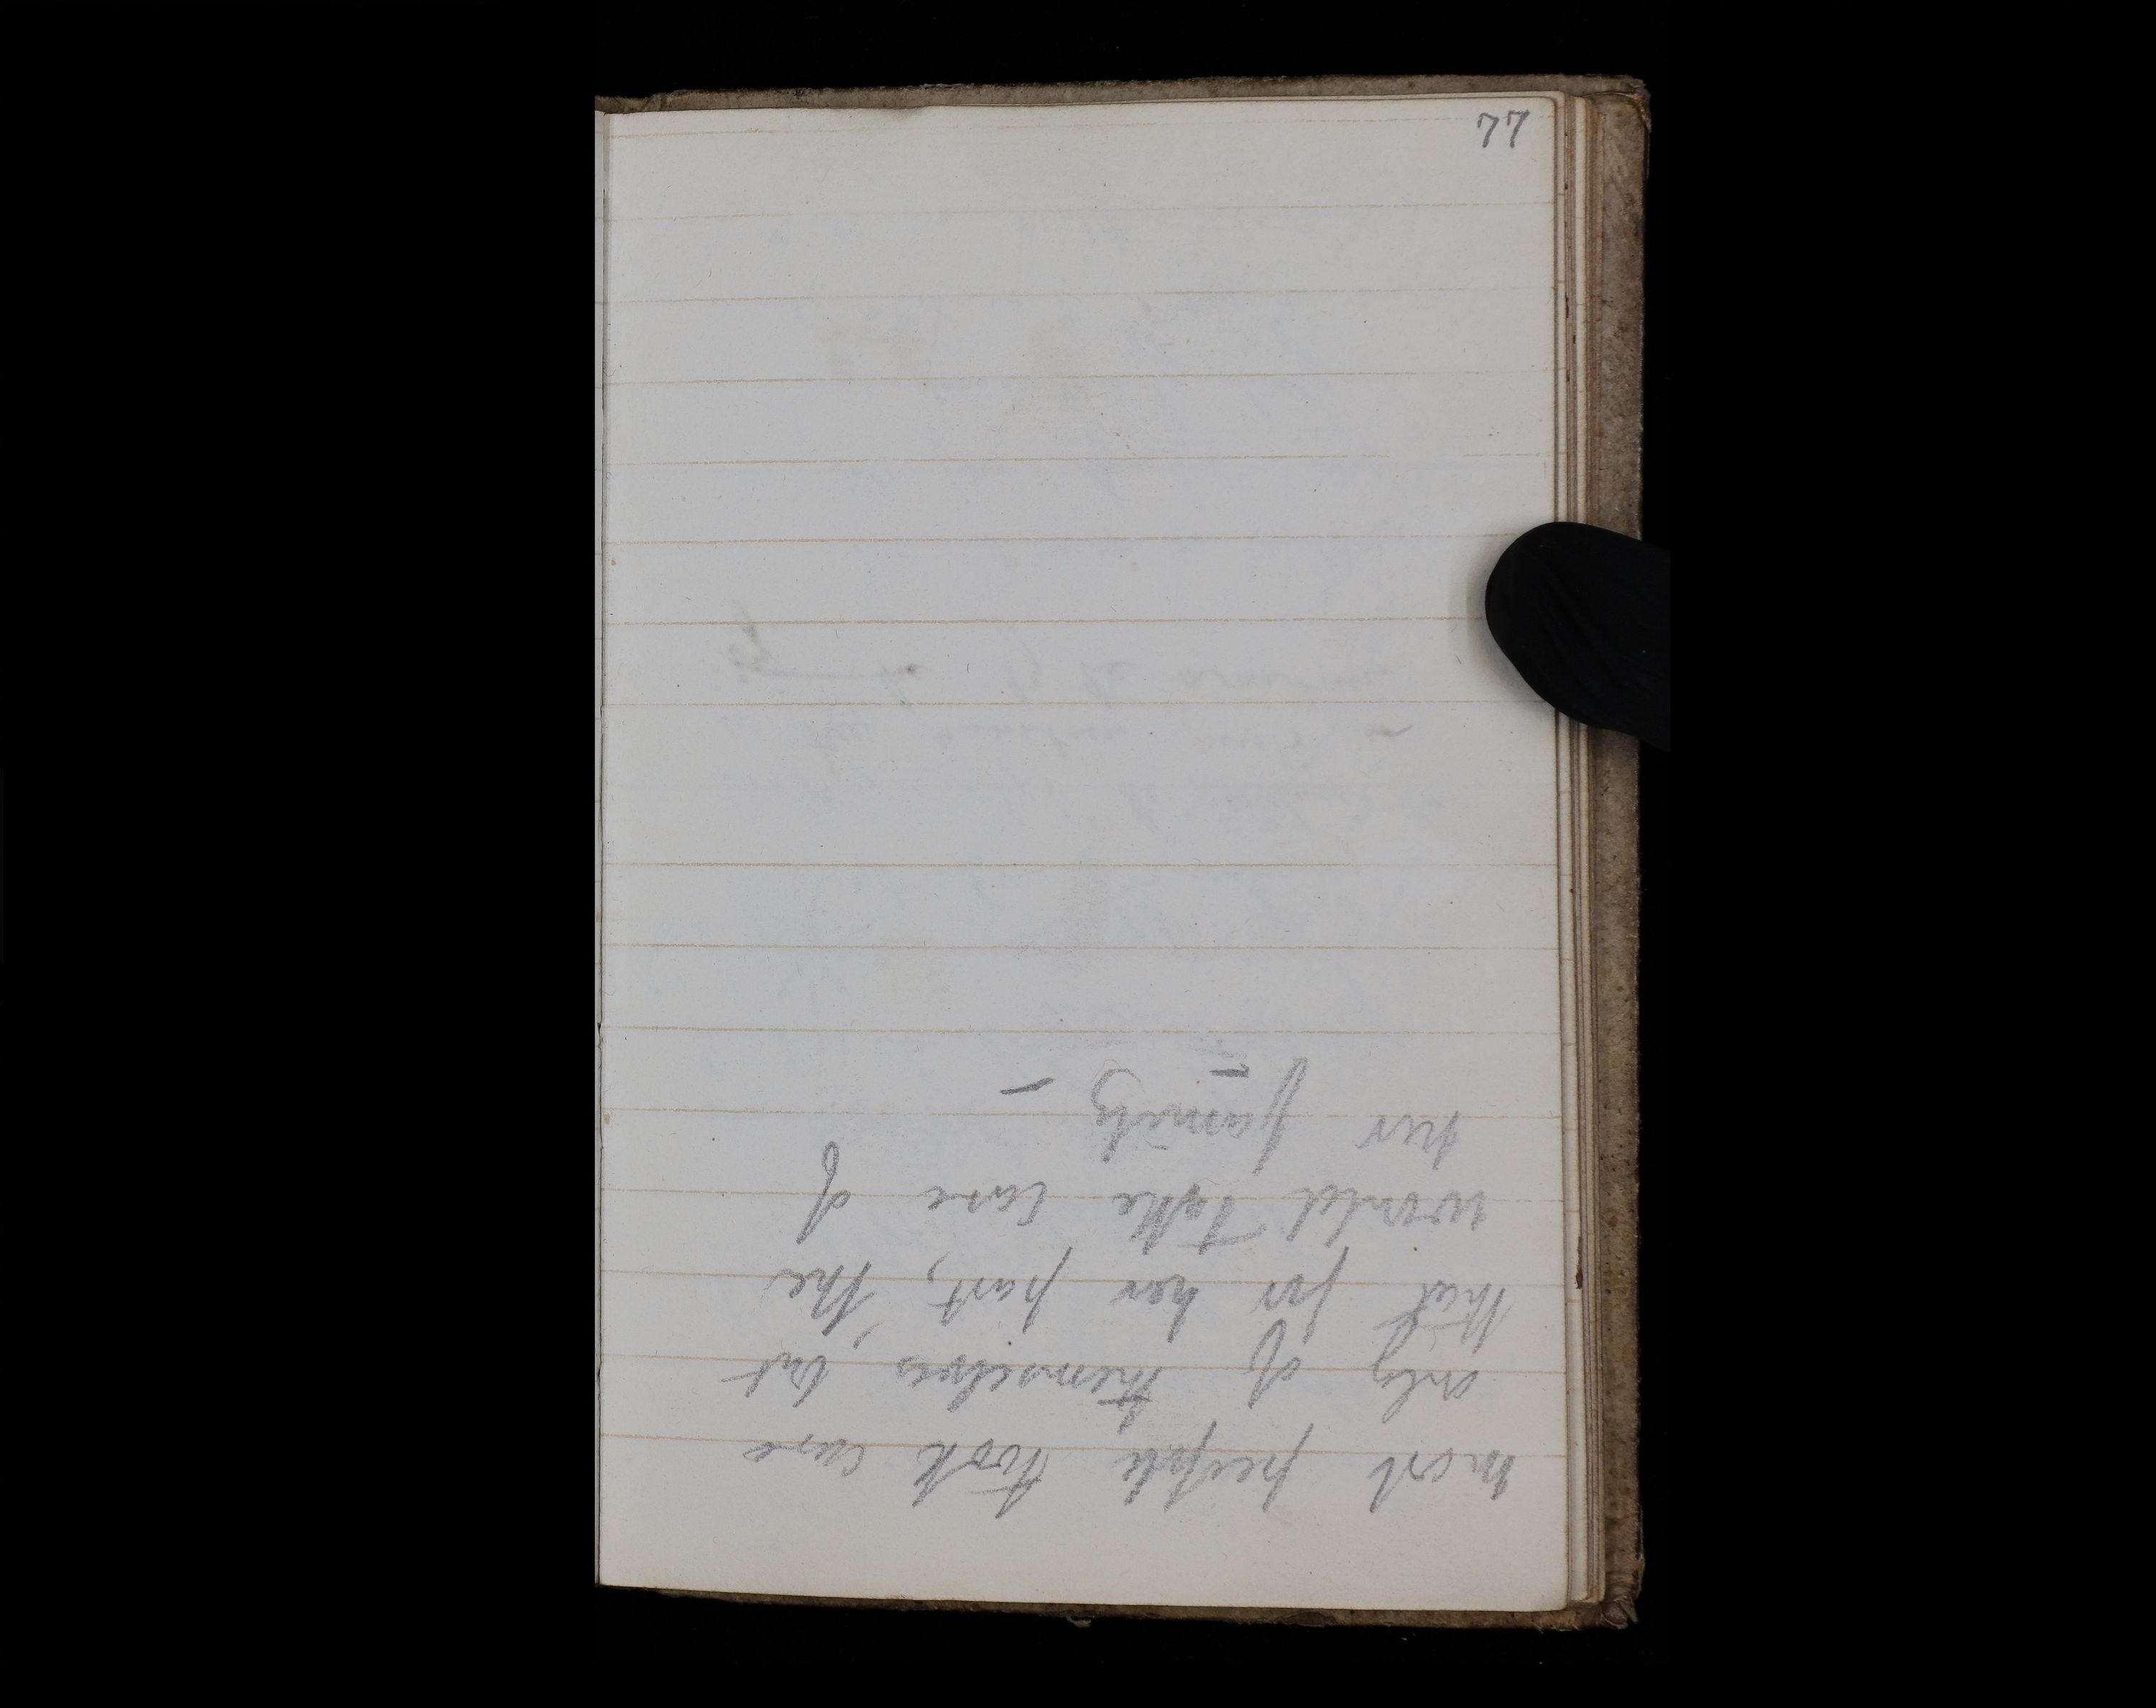 77
most people took care
only of themselves, but
that for her part, she
would take care of
her family –